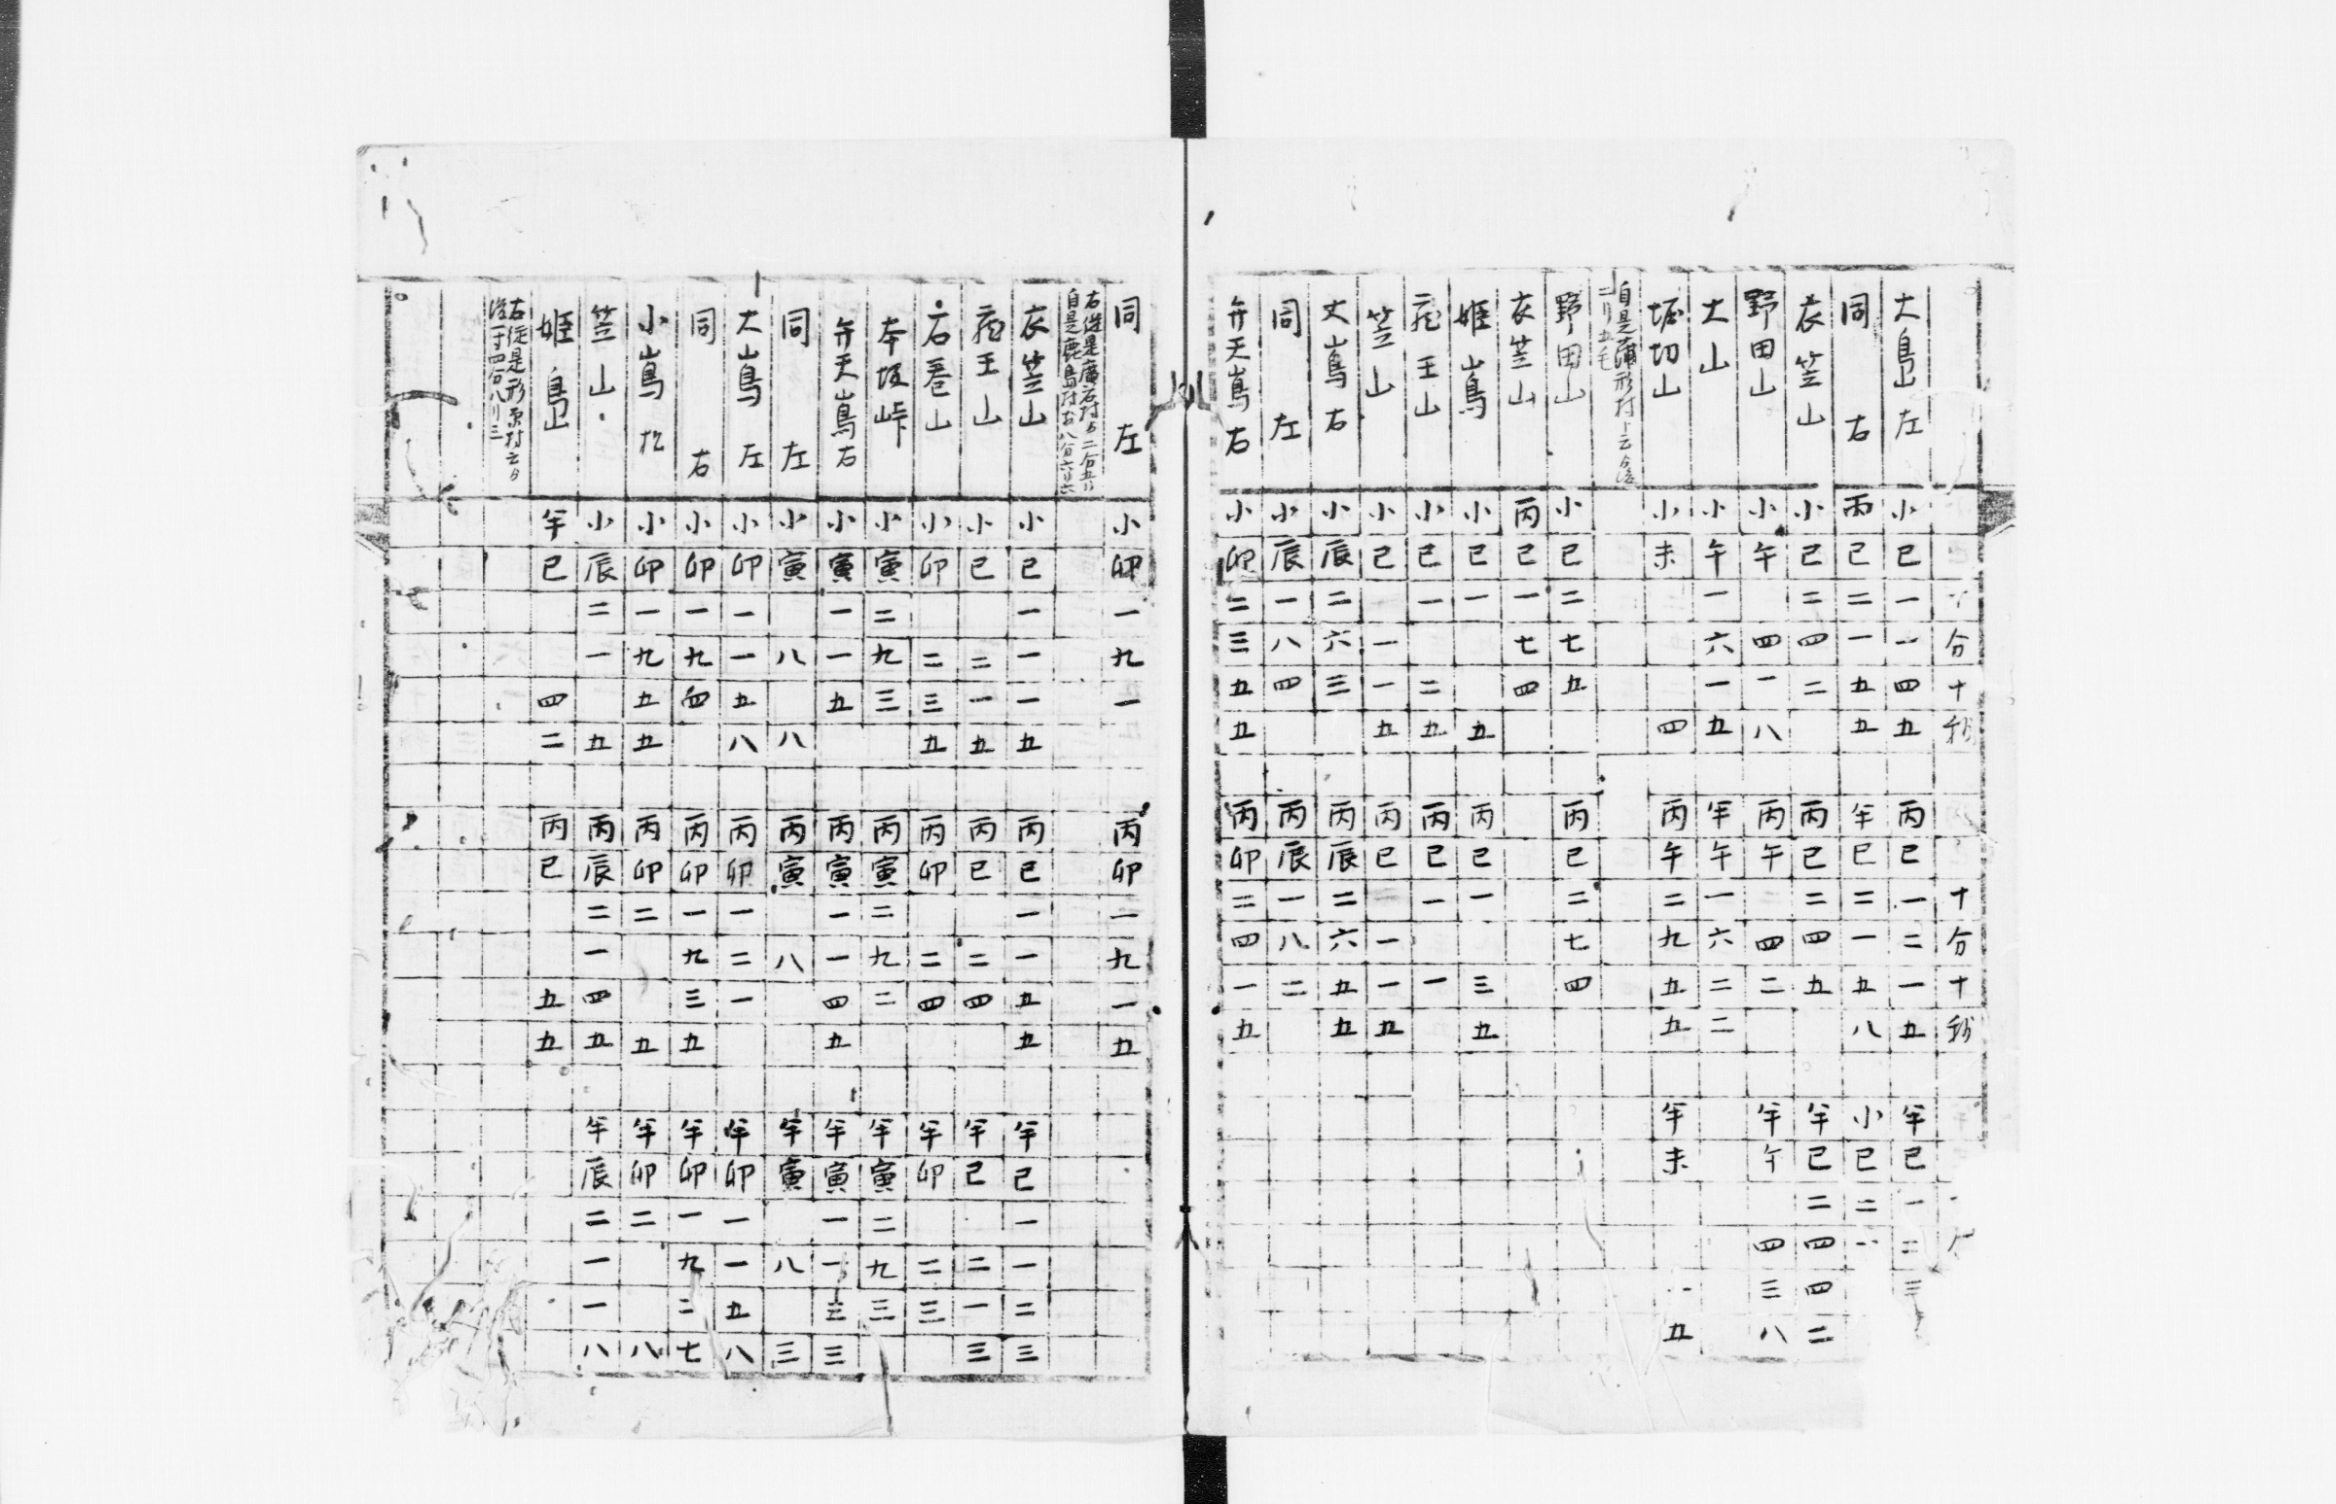 十分十秒 十分十秒
大島左 小巳一一四五 丙巳一二一五 午巳一二三
同右 丙巳二一五五 午巳二一五八 小巳二一
衣笠山 小巳二四二 丙巳二四五 午巳二四四二
野田山 小午四一八 丙午四二 午午四三八
大山 小午一六一五 午午一六二二
堀切山 小未四 丙午二九五五 午未一五
自是蒲形村
二リ五毛
野田山 小巳二七五 丙巳二七四
衣笠山 丙巳一七四
姫嶌 小巳一五 丙巳一三五
龍王山 小巳一二五 丙巳一一
笠山 小巳一一五 丙巳一一五
大嶌右 小辰二六三 丙辰二六五五
同左 小辰一八四 丙辰一八二
弁天嶌右 小卯二三五五 丙卯二四一五
同左 小卯一九一 丙卯一九一五
右従是廣石村
自是鹿島村
衣笠山 小巳一一一五 丙巳一一五五 午巳一一二三
龍王山 小巳二一五 丙巳二四 午巳二一三
石巻山 小卯二三五 丙卯二四 午卯二三
本坂峠 小寅二九三 丙寅二九二 午寅二九三
弁天嶌右 小寅一一五 丙寅一一四五 午寅一一三三
同左 小寅八八 丙寅八 午寅八三
大嶌左 小卯一一五八 丙卯一二一 午卯一一五八
同右 小卯一九四 丙卯一九三五 午卯一九二七
小嶌 小卯一九五五 丙卯二五 午卯二八
笠山 小辰二一五 丙辰二一四五 午辰二一一八
姫島 午巳四二 丙巳五五
右従是形原村